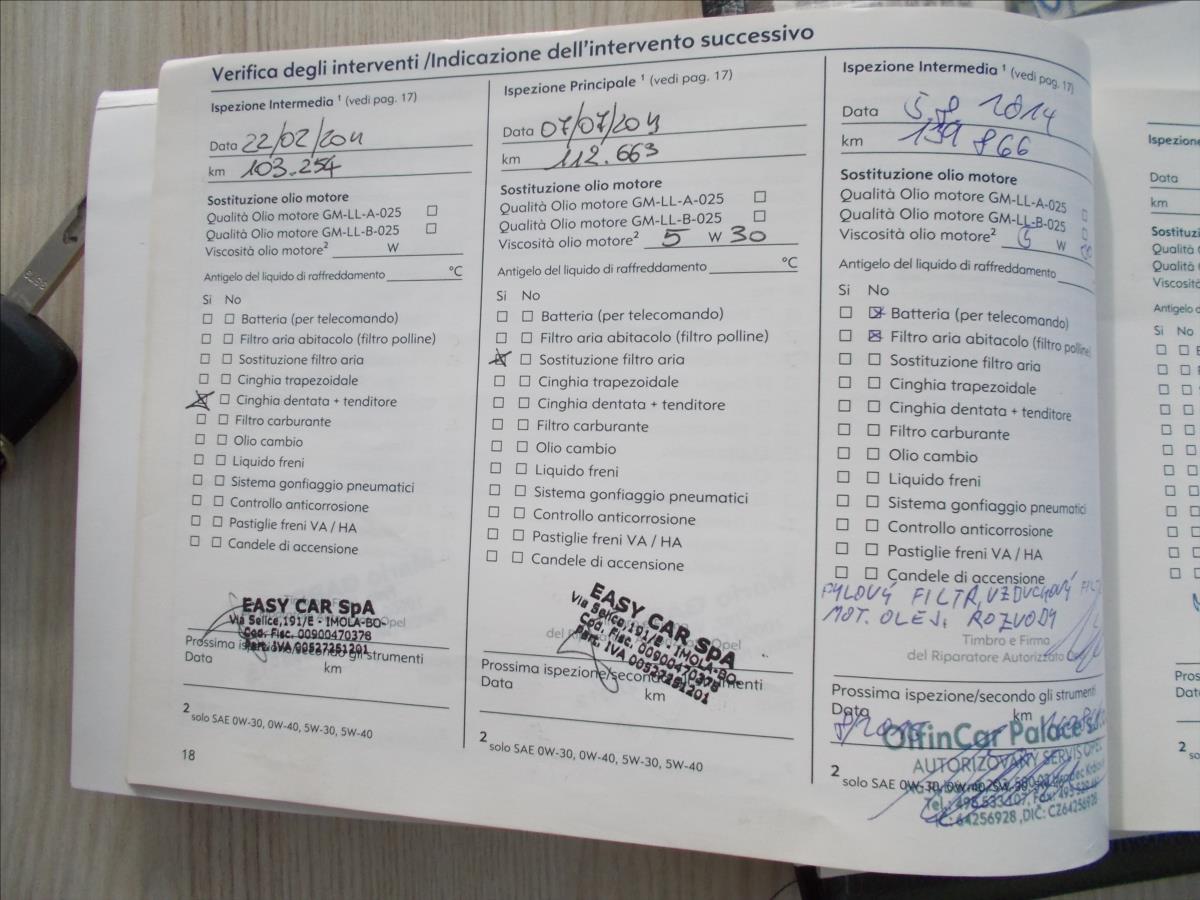 Verifica degli interventi /Indicazione dell'intervento successivo
Ispezione Intermedia ¹ (vedi pag. 17)
Data 22/02/2011
km 103.254
Sostituzione olio motore
Qualità Olio motore GM-LL-A-025 ☐
Qualità Olio motore GM-LL-B-025 ☐
Viscosità olio motore² W
Antigelo del liquido di raffreddamento °C
Si No
☐ ☐ Batteria (per telecomando)
☐ ☐ Filtro aria abitacolo (filtro polline)
☐ ☐ Sostituzione filtro aria
☐ ☐ Cinghia trapezoidale
☒ ☐ Cinghia dentata + tenditore
☐ ☐ Filtro carburante
☐ ☐ Olio cambio
☐ ☐ Liquido freni
☐ ☐ Sistema gonfiaggio pneumatici
☐ ☐ Controllo anticorrosione
☐ ☐ Pastiglie freni VA / HA
☐ ☐ Candele di accensione
EASY CAR SpA
Via Selice,191/E - IMOLA-BO-
Cod. Fisc. 00900470378
Part. IVA 00527251201
Opel
Prossima ispezione/secondo gli strumenti
Data km
² solo SAE 0W-30, 0W-40, 5W-30, 5W-40
18
Ispezione Principale ¹ (vedi pag. 17)
Data 07/07/2011
km 112.663
Sostituzione olio motore
Qualità Olio motore GM-LL-A-025 ☐
Qualità Olio motore GM-LL-B-025 ☐
Viscosità olio motore² 5 W 30
Antigelo del liquido di raffreddamento °C
Si No
☐ ☐ Batteria (per telecomando)
☐ ☐ Filtro aria abitacolo (filtro polline)
☒ ☐ Sostituzione filtro aria
☐ ☐ Cinghia trapezoidale
☐ ☐ Cinghia dentata + tenditore
☐ ☐ Filtro carburante
☐ ☐ Olio cambio
☐ ☐ Liquido freni
☐ ☐ Sistema gonfiaggio pneumatici
☐ ☐ Controllo anticorrosione
☐ ☐ Pastiglie freni VA / HA
☐ ☐ Candele di accensione
EASY CAR SpA
Via Selice,191/E - IMOLA-BO-
Cod. Fisc. 00900470378
Part. IVA 00527251201
del Opel
Prossima ispezione/secondo gli strumenti
Data km
² solo SAE 0W-30, 0W-40, 5W-30, 5W-40
Ispezione Intermedia ¹ (vedi pag. 17)
Data 5. 8 2014
km 139 866
Sostituzione olio motore
Qualità Olio motore GM-LL-A-025 ☐
Qualità Olio motore GM-LL-B-025 ☐
Viscosità olio motore² 5 W
Antigelo del liquido di raffreddamento
Si No
☐ ☒ Batteria (per telecomando)
☐ ☒ Filtro aria abitacolo (filtro polline)
☐ ☐ Sostituzione filtro aria
☐ ☐ Cinghia trapezoidale
☐ ☐ Cinghia dentata + tenditore
☐ ☐ Filtro carburante
☐ ☐ Olio cambio
☐ ☐ Liquido freni
☐ ☐ Sistema gonfiaggio pneumatici
☐ ☐ Controllo anticorrosione
☐ ☐ Pastiglie freni VA / HA
☐ ☐ Candele di accensione
PYLOVÝ FILTR, VZDUCHOVÝ
MOT. OLEJ, ROZVODY
Timbro e Firma
del Riparatore Autorizzato
Prossima ispezione/secondo gli strumenti
Data km
Car Palace s.r.o.
AUTORIZOVANÝ SERVIS OPEL
² solo SAE 0W-30, 0W-40, 5W-30
Tel.: 495 533 107, Fax: 495
IČ: 64256928 ,DIČ: CZ64256928
Ispezione
Data
km
Qualità
Qualità
Viscosità
Antigelo
Si No